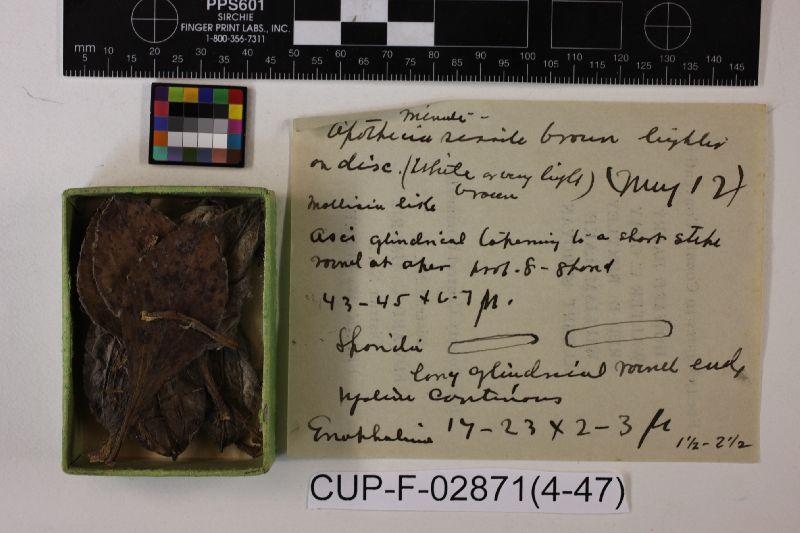 PPS601
SIRCHIE
FINGER PRINT LABS., INC.
1-800-356-7311
mm 5 10 15 20 25 30 35 40 45 50 55 60 65 70 75 80 85 90 95 100 105 110 115 120 125 130 135 140 145
minute -
Apothecia sessile brown lighter
on disc. (White or very light) (May 12)
brown
Mollisia like
Asci cylindrical tapering to a short stipe
round at apex prob. 8-spored
43-45 x 6-7 µ.
Sporidia
long cylindrical round ends
hyaline continuous
17-23 x 2-3 µ 1½-2½
CUP-F-02871(4-47)